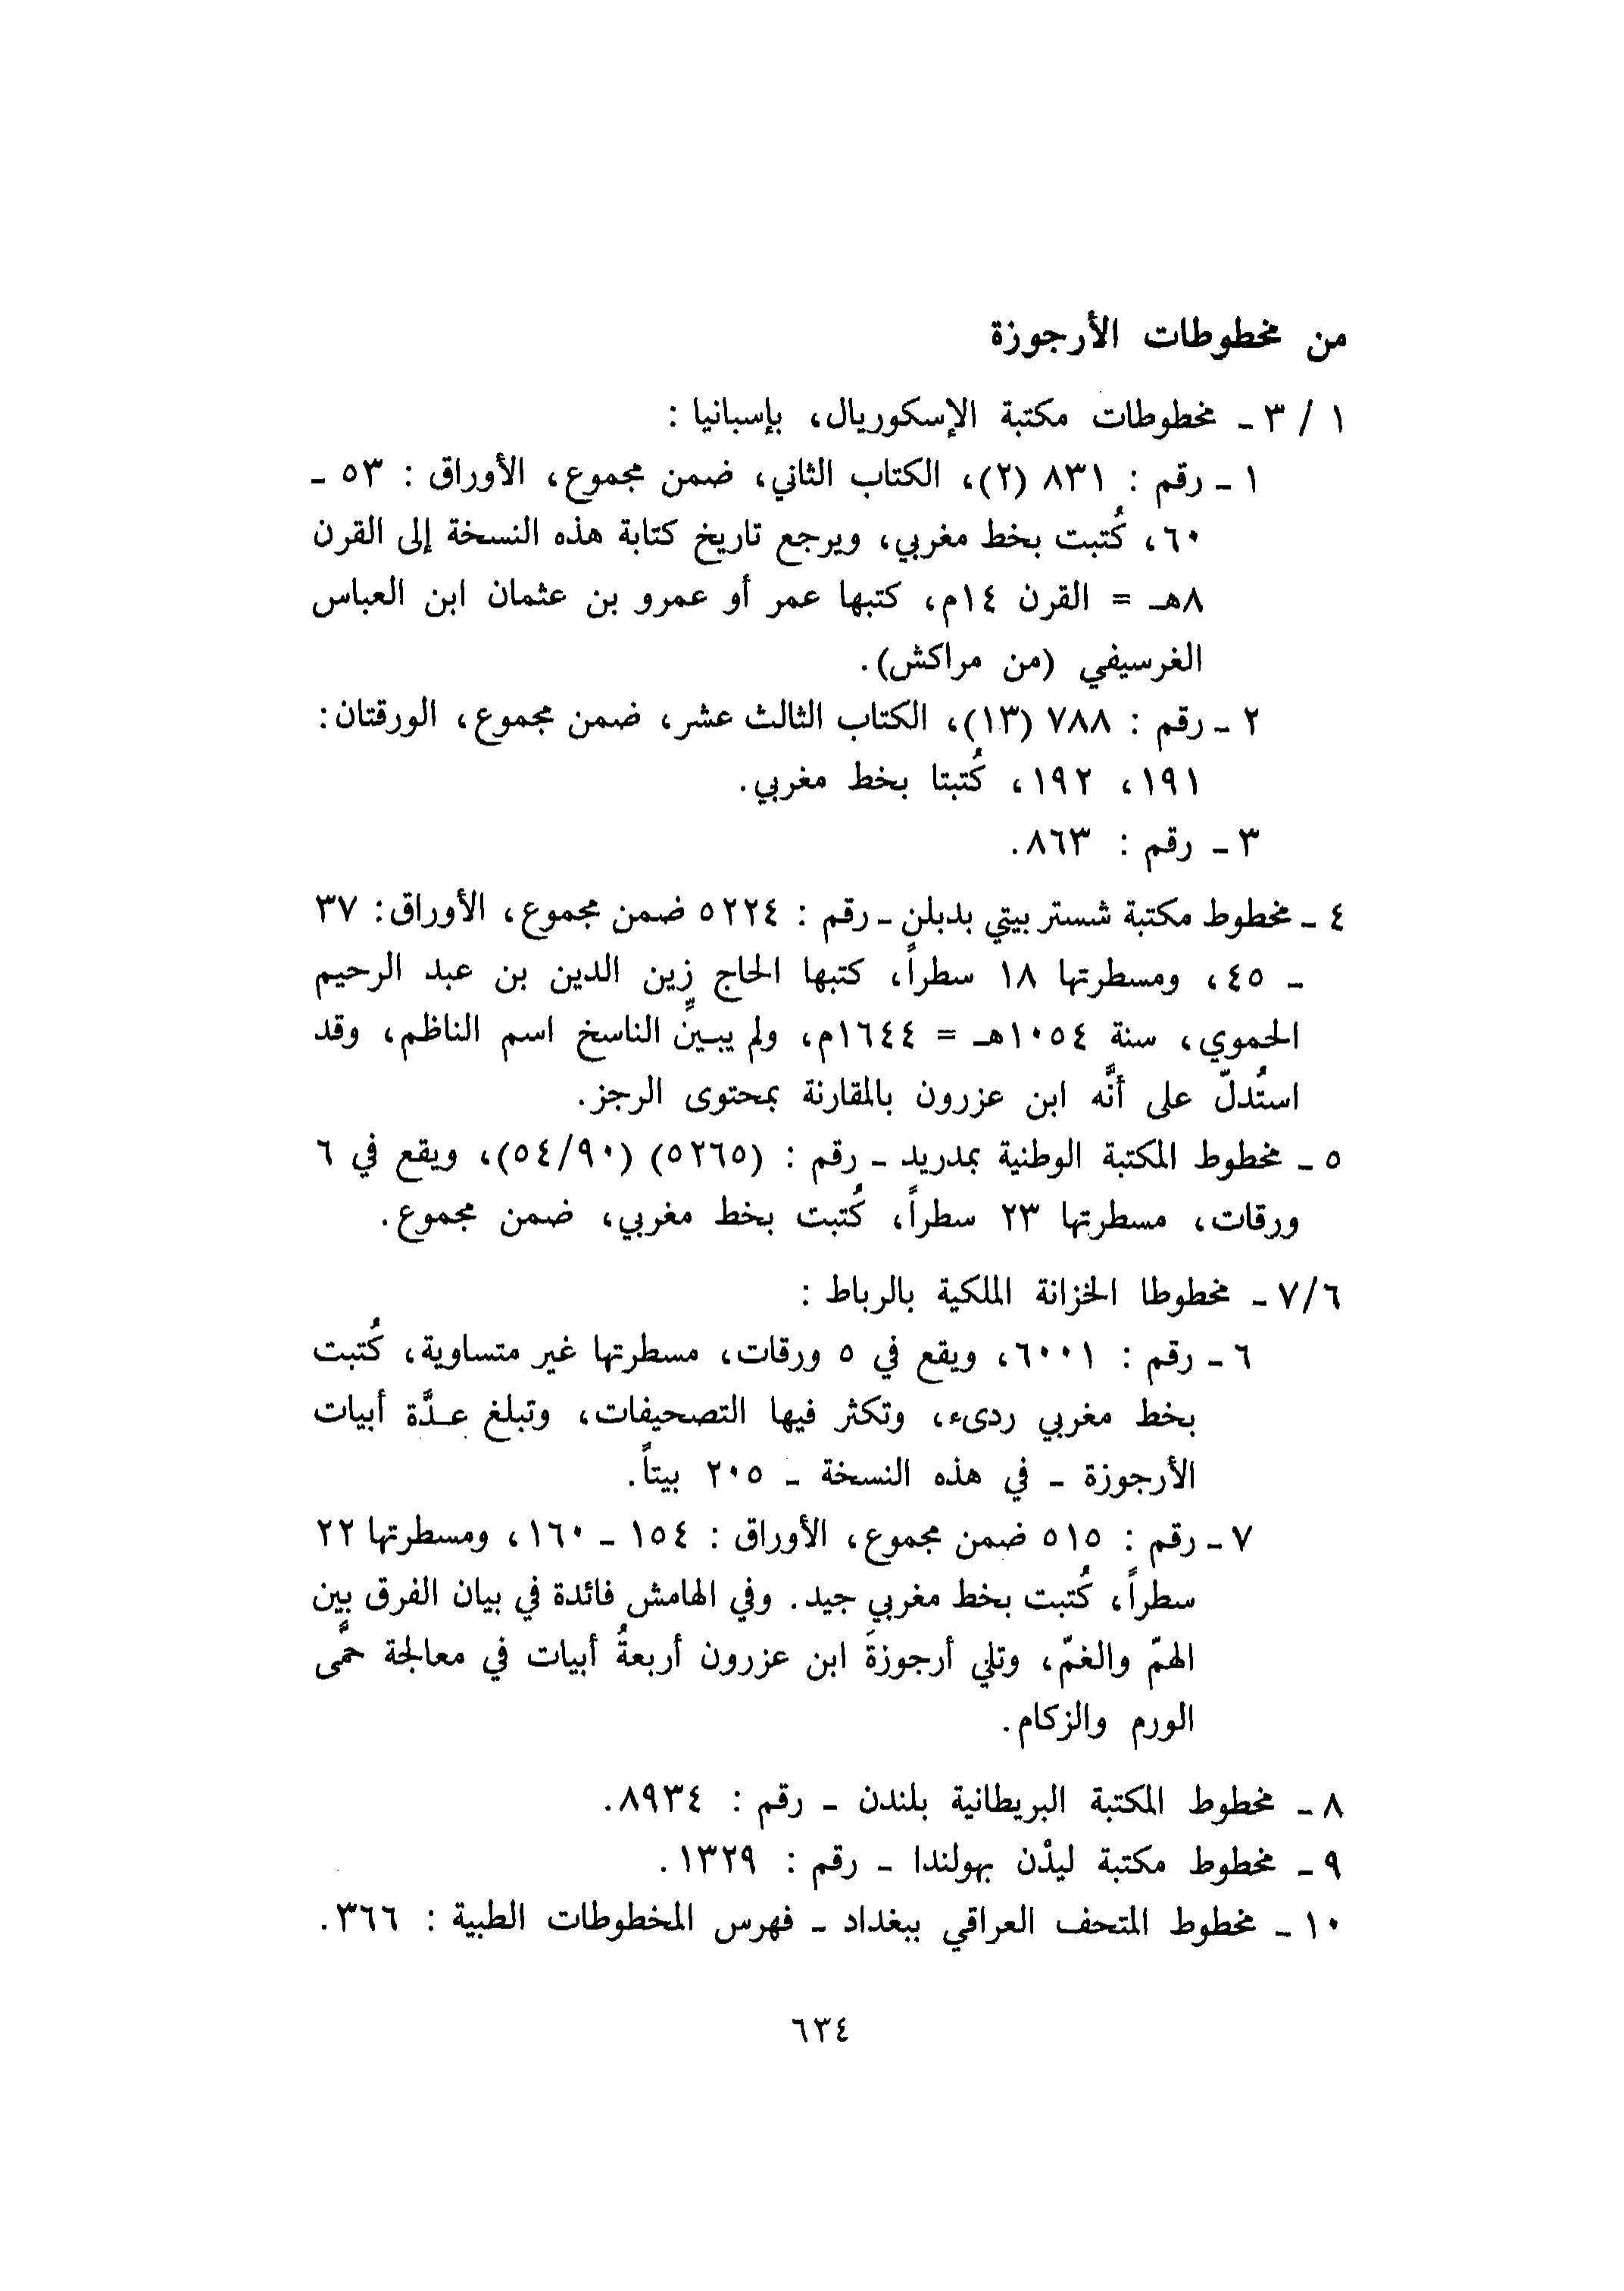 من مخطوطات الأرجوزة
١ / ٣ ـ مخطوطات مكتبة الإسكوريال، بإسبانيا :
١ ـ رقم : ٨٣١ (٢)، الكتاب الثاني، ضمن مجموع، الأوراق : ٥٣ ـ
٦٠، كُتبت بخط مغربي، ويرجع تاريخ كتابة هذه النسخة إلى القرن
٨هـ = القرن ١٤م، كتبها عمر أو عمرو بن عثمان ابن العباس
الغرسيفي (من مراكش).
٢ ـ رقم : ٧٨٨ (١٣)، الكتاب الثالث عشر، ضمن مجموع، الورقتان:
١٩١، ١٩٢، كُتبتا بخط مغربي.
٣ ـ رقم : ٨٦٣.
٤ ـ مخطوط مكتبة شستر بيتي بدبلن ـ رقم : ٥٢٢٤ ضمن مجموع، الأوراق: ٣٧
ـ ٤٥، ومسطرتها ١٨ سطراً، كتبها الحاج زين الدين بن عبد الرحيم
الحموي، سنة ١٠٥٤هـ = ١٦٤٤م، ولم يبينِّ الناسخ اسم الناظم، وقد
استُدلّ على أنَّه ابن عزرون بالمقارنة بمحتوى الرجز.
٥ ـ مخطوط المكتبة الوطنية بمدريد ـ رقم : (٥٢٦٥) (٥٤/٩٠)، ويقع في ٦
ورقات، مسطرتها ٢٣ سطراً، كُتبت بخط مغربي، ضمن مجموع.
٧/٦ ـ مخطوطا الخزانة الملكية بالرباط :
٦ ـ رقم : ٦٠٠١، ويقع في ٥ ورقات، مسطرتها غير متساوية، كُتبت
بخط مغربي ردىء، وتكثر فيها التصحيفات، وتبلغ عـدَّة أبيات
الأرجوزة ـ في هذه النسخة ـ ٢٠٥ بيتاً.
٧ ـ رقم : ٥١٥ ضمن مجموع، الأوراق : ١٥٤ ـ ١٦٠، ومسطرتها ٢٢
سطراً، كُتبت بخط مغربي جيد. وفي الهامش فائدة في بيان الفرق بين
الهمّ والغمّ، وتلي أرجوزةَ ابن عزرون أربعةُ أبيات في معالجة حمَّى
الورم والزكام.
٨ ـ مخطوط المكتبة البريطانية بلندن ـ رقم : ٨٩٣٤.
٩ ـ مخطوط مكتبة ليدْن بهولندا ـ رقم : ١٣٢٩.
١٠ ـ مخطوط المتحف العراقي ببغداد ـ فهرس المخطوطات الطبية : ٣٦٦.
٦٣٤